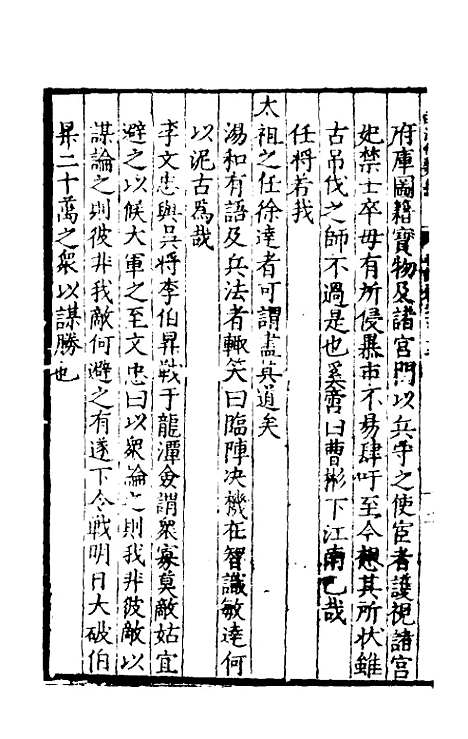 府庫圖籍寶物及諸宮門以兵守之使宦者護視諸宮
妃禁士卒毋有所侵暴市不易肆吁至今想其所狀雖
古吊伐之師不過是也奚啻曰曹彬下江南已哉
任將若我
太祖之任徐達者可謂盡其道矣
湯和有語及兵法者輙笑曰臨陣决機在智識敏達何
以泥古爲哉
李文忠與吳將李伯昇戰于龍潭僉謂衆寡莫敵姑宜
避之以候大軍之至文忠曰以衆論之則我非彼敵以
謀論之則彼非我敵何避之有遂下令戰明日大破伯
昇二十萬之衆以謀勝也